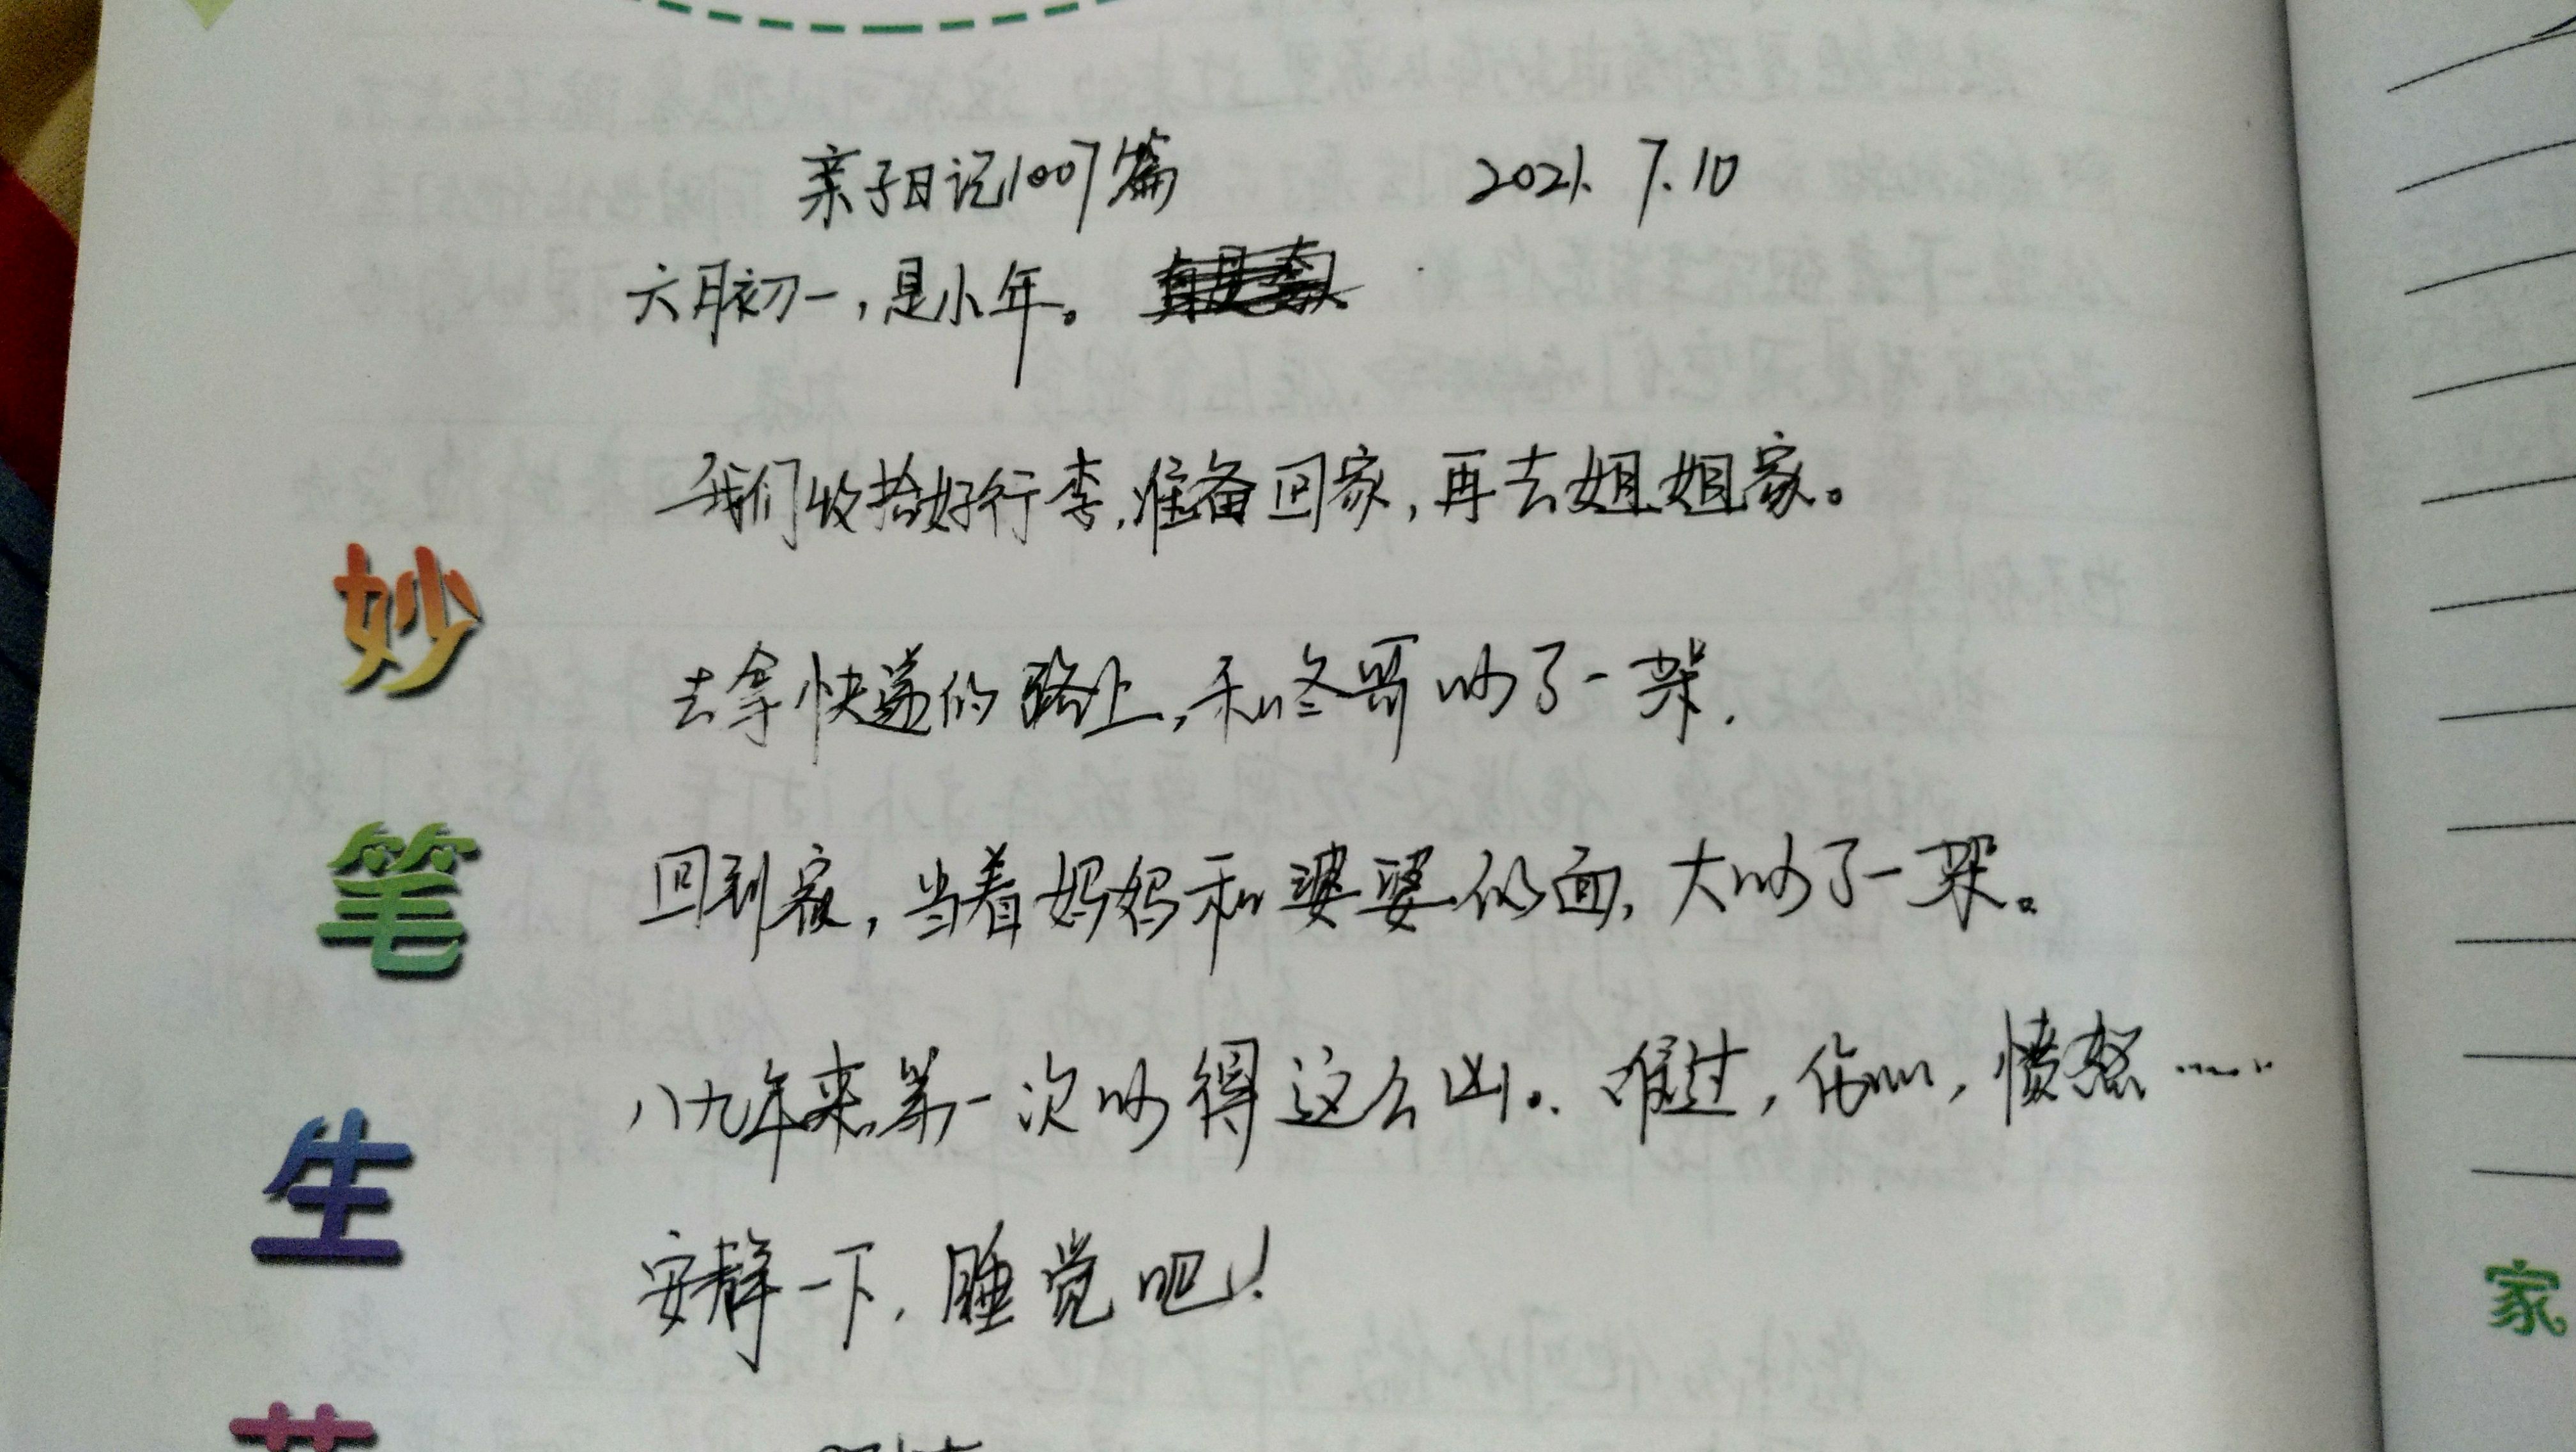 亲子日记1007篇 2021.7.10
六月初一,是小年。
我们收拾好行李,准备回家,再去姐姐家。
去拿快递的路上,和咚哥吵了一架.
回到家,当着妈妈和婆婆的面,大吵了一架。
八九年来第一次吵得这么凶。难过,伤心,愤怒……
安静一下,睡觉吧!
妙
笔
生
家